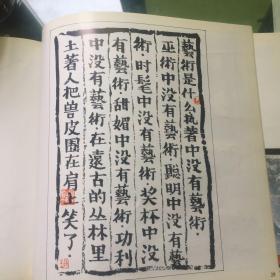 藝術是什么执著中没有藝術
巫術中没有藝術·聪明中没有藝
術·时髦中没有藝術·奖杯中没
有藝術·甜媚中没有藝術·功利
中没有藝術·在遠古的丛林里
土著人把兽皮围在肩上笑了